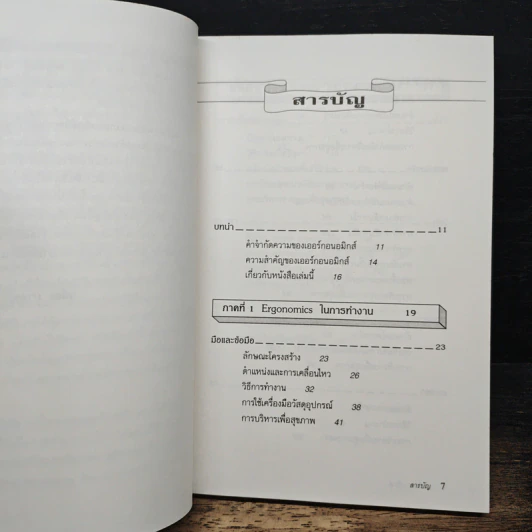 สารบัญ
บทนำ 11
คำจำกัดความของเออร์กอนอมิกส์ 11
ความสำคัญของเออร์กอนอมิกส์ 14
เกี่ยวกับหนังสือเล่มนี้ 16
ภาคที่ 1 Ergonomics ในการทำงาน 19
มือและข้อมือ 23
ลักษณะโครงสร้าง 23
ตำแหน่งและการเคลื่อนไหว 26
วิธีการทำงาน 32
การใช้เครื่องมือวัสดุอุปกรณ์ 38
การบริหารเพื่อสุขภาพ 41
สารบัญ 7